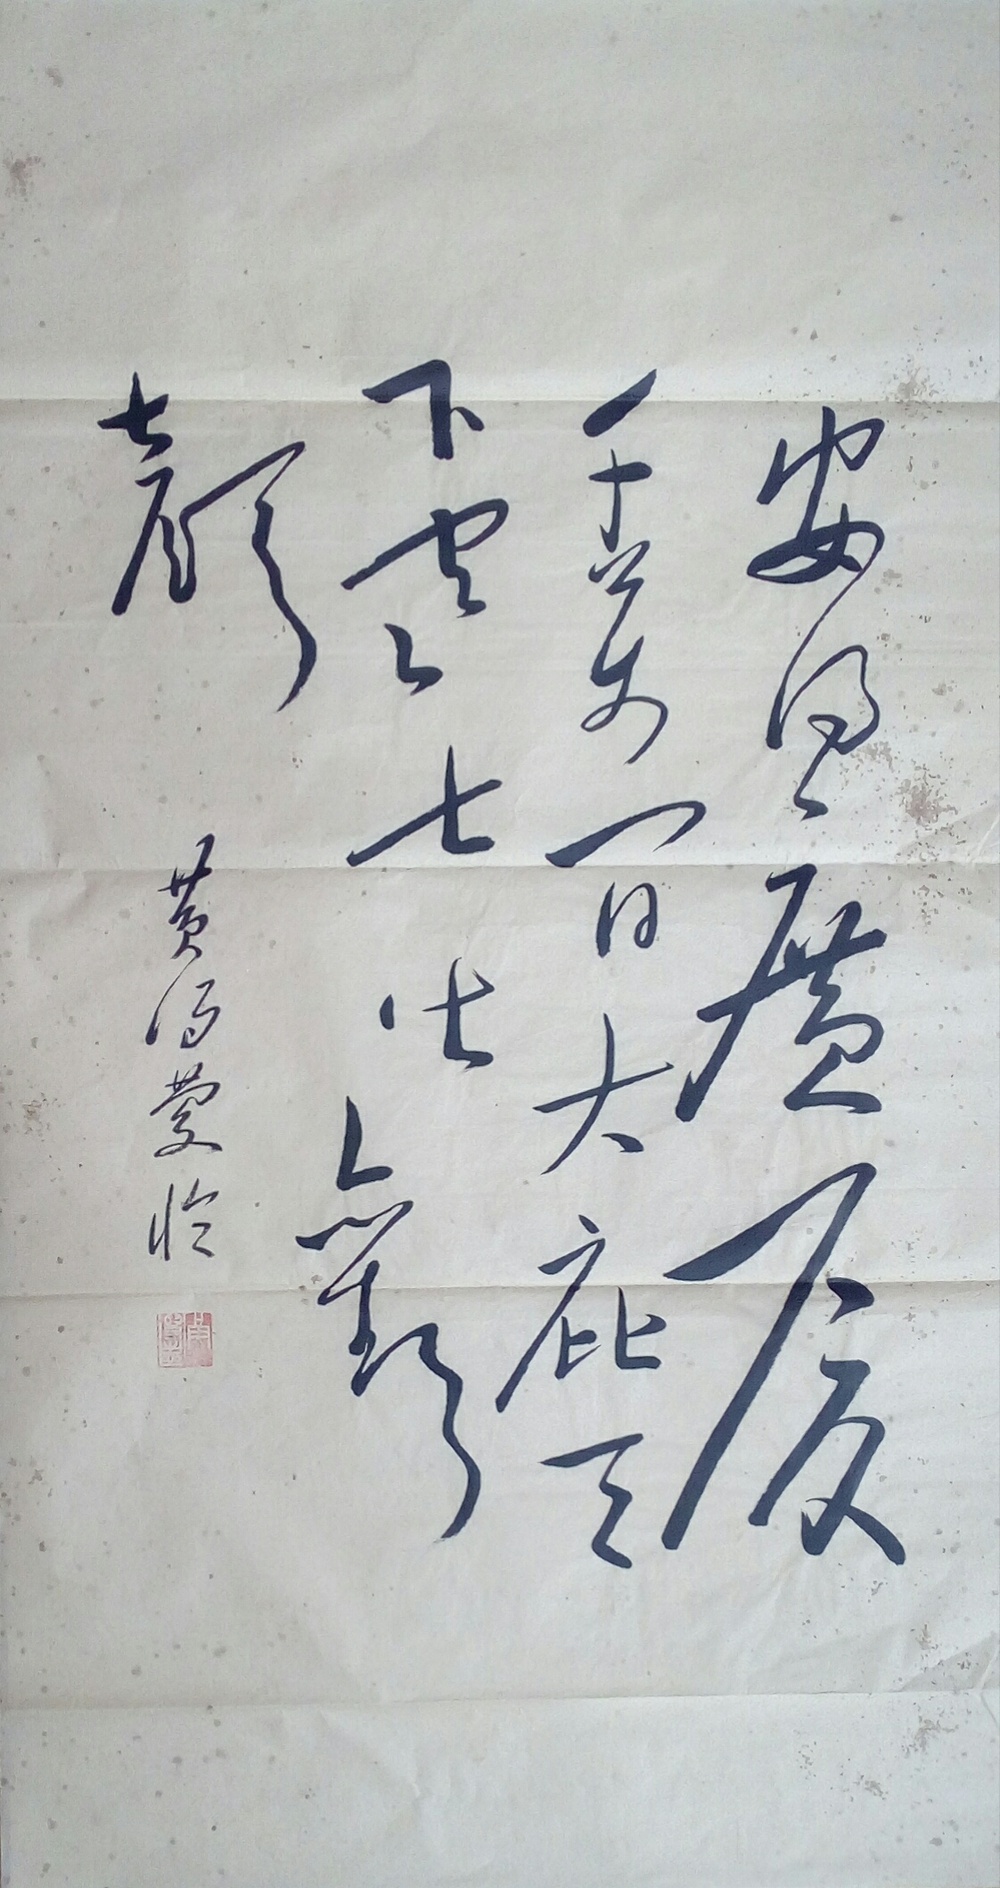 安得廣廈
千萬間大庇天
下寒士俱歡
顏
黄 临